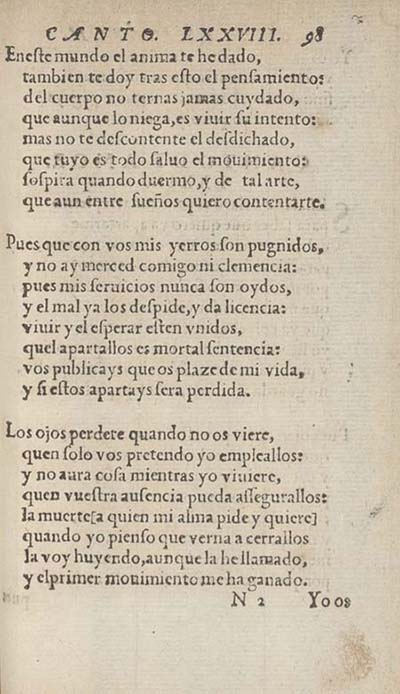 CANTO. LXXVIII. 98
En este mundo el anima te he dado,
tambien te doy tras esto el pensamiento:
del cuerpo no ternas jamas cuydado,
que aunque lo niega, es viuir su intento:
mas no te descontente el desdichado,
que tuyo es todo saluo el mouimiento:
sospira quando duermo, y de tal arte,
que aun entre sueños quiero contentarte.
Pues que con vos mis yerros son pugnidos,
y no ay merced comigo ni clemencia:
pues mis seruicios nunca son oydos,
y el mal ya los despide, y da licencia:
viuir y el esperar esten vnidos,
quel apartallos es mortal sentencia:
vos publicays que os plaze de mi vida,
y si estos apartays sera perdida.
Los ojos perdere quando no os viere,
quen solo vos pretendo yo empleallos:
y no aura cosa mientras yo viuiere,
quen vuestra ausencia pueda assegurallos:
la muerte[a quien mi alma pide y quiere]
quando yo pienso que verna a cerrallos
la voy huyendo, aunque la he llamado,
y el primer mouimiento me ha ganado.
N 2 Yo os